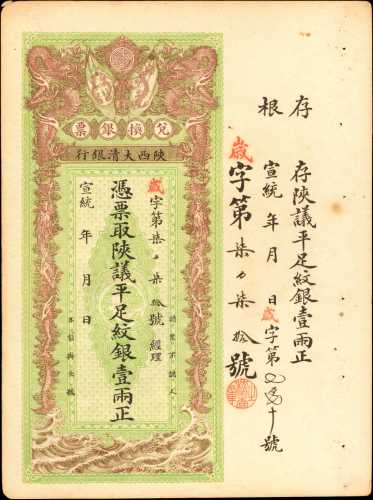 存
根
存陝議平足紋銀壹兩正
宣統 年 月 日歲字第 十號
歲字第柒 柒拾號
票銀換兌
行銀清大西陝
歲字第柒 柒拾號 經理
憑票取陝議平足紋銀壹兩正
宣統 年 月 日